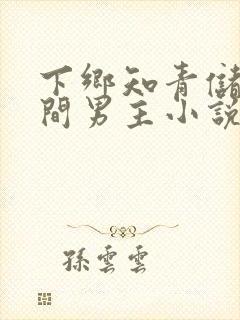 下鄉知青儲
間男主小説
孫雲雲